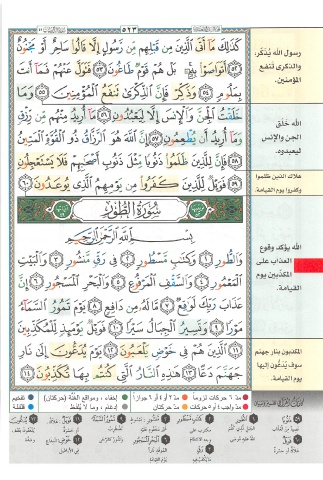 ٥٢٣
كَذَٰلِكَ مَا أَتَى الَّذِينَ مِن قَبْلِهِم مِّن رَّسُولٍ إِلَّا قَالُوا سَاحِرٌ أَوْ مَجْنُونٌ
٥٢ أَتَوَاصَوْا بِهِ بَلْ هُمْ قَوْمٌ طَاغُونَ ٥٣ فَتَوَلَّ عَنْهُمْ فَمَا أَنتَ
بِمَلُومٍ ٥٤ وَذَكِّرْ فَإِنَّ الذِّكْرَىٰ تَنفَعُ الْمُؤْمِنِينَ ٥٥ وَمَا
خَلَقْتُ الْجِنَّ وَالْإِنسَ إِلَّا لِيَعْبُدُونِ ٥٦ مَا أُرِيدُ مِنْهُم مِّن رِّزْقٍ
وَمَا أُرِيدُ أَن يُطْعِمُونِ ٥٧ إِنَّ اللَّهَ هُوَ الرَّزَّاقُ ذُو الْقُوَّةِ الْمَتِينُ
٥٨ فَإِنَّ لِلَّذِينَ ظَلَمُوا ذَنُوبًا مِّثْلَ ذَنُوبِ أَصْحَابِهِمْ فَلَا يَسْتَعْجِلُونِ
٥٩ فَوَيْلٌ لِّلَّذِينَ كَفَرُوا مِن يَوْمِهِمُ الَّذِي يُوعَدُونَ ٦٠
سُورَةُ الطُّورِ
بِسْمِ اللَّهِ الرَّحْمَٰنِ الرَّحِيمِ
وَالطُّورِ ١ وَكِتَابٍ مَّسْطُورٍ ٢ فِي رَقٍّ مَّنشُورٍ ٣ وَالْبَيْتِ
الْمَعْمُورِ ٤ وَالسَّقْفِ الْمَرْفُوعِ ٥ وَالْبَحْرِ الْمَسْجُورِ ٦ إِنَّ
عَذَابَ رَبِّكَ لَوَاقِعٌ ٧ مَّا لَهُ مِن دَافِعٍ ٨ يَوْمَ تَمُورُ السَّمَاءُ
مَوْرًا ٩ وَتَسِيرُ الْجِبَالُ سَيْرًا ١٠ فَوَيْلٌ يَوْمَئِذٍ لِّلْمُكَذِّبِينَ
١١ الَّذِينَ هُمْ فِي خَوْضٍ يَلْعَبُونَ ١٢ يَوْمَ يُدَعُّونَ إِلَىٰ نَارِ
جَهَنَّمَ دَعًّا ١٣ هَٰذِهِ النَّارُ الَّتِي كُنتُم بِهَا تُكَذِّبُونَ ١٤
رسول الله يُذكّر،
والذكرى تنفع
المؤمنين.
الله خلق
الجن والإنس
ليعبدوه.
هلاك الذين ظلموا
وكفروا يوم القيامة.
الله يؤكد وقوع
العذاب على
المكذبين يوم
القيامة.
المكذبون بنار جهنم
سوف يُدعّون إليها
يوم القيامة.
مدّ ٦ حركات لزوماً
مدّ ٢ أو ٤ أو ٦ جوازاً
إخفاء، ومواقع الغُنَّة (حركتان)
تفخيم
مدّ واجب ٤ أو ٥ حركات
مدّ حركتان
إدغام، وما لا يُلفظ
قلقلة